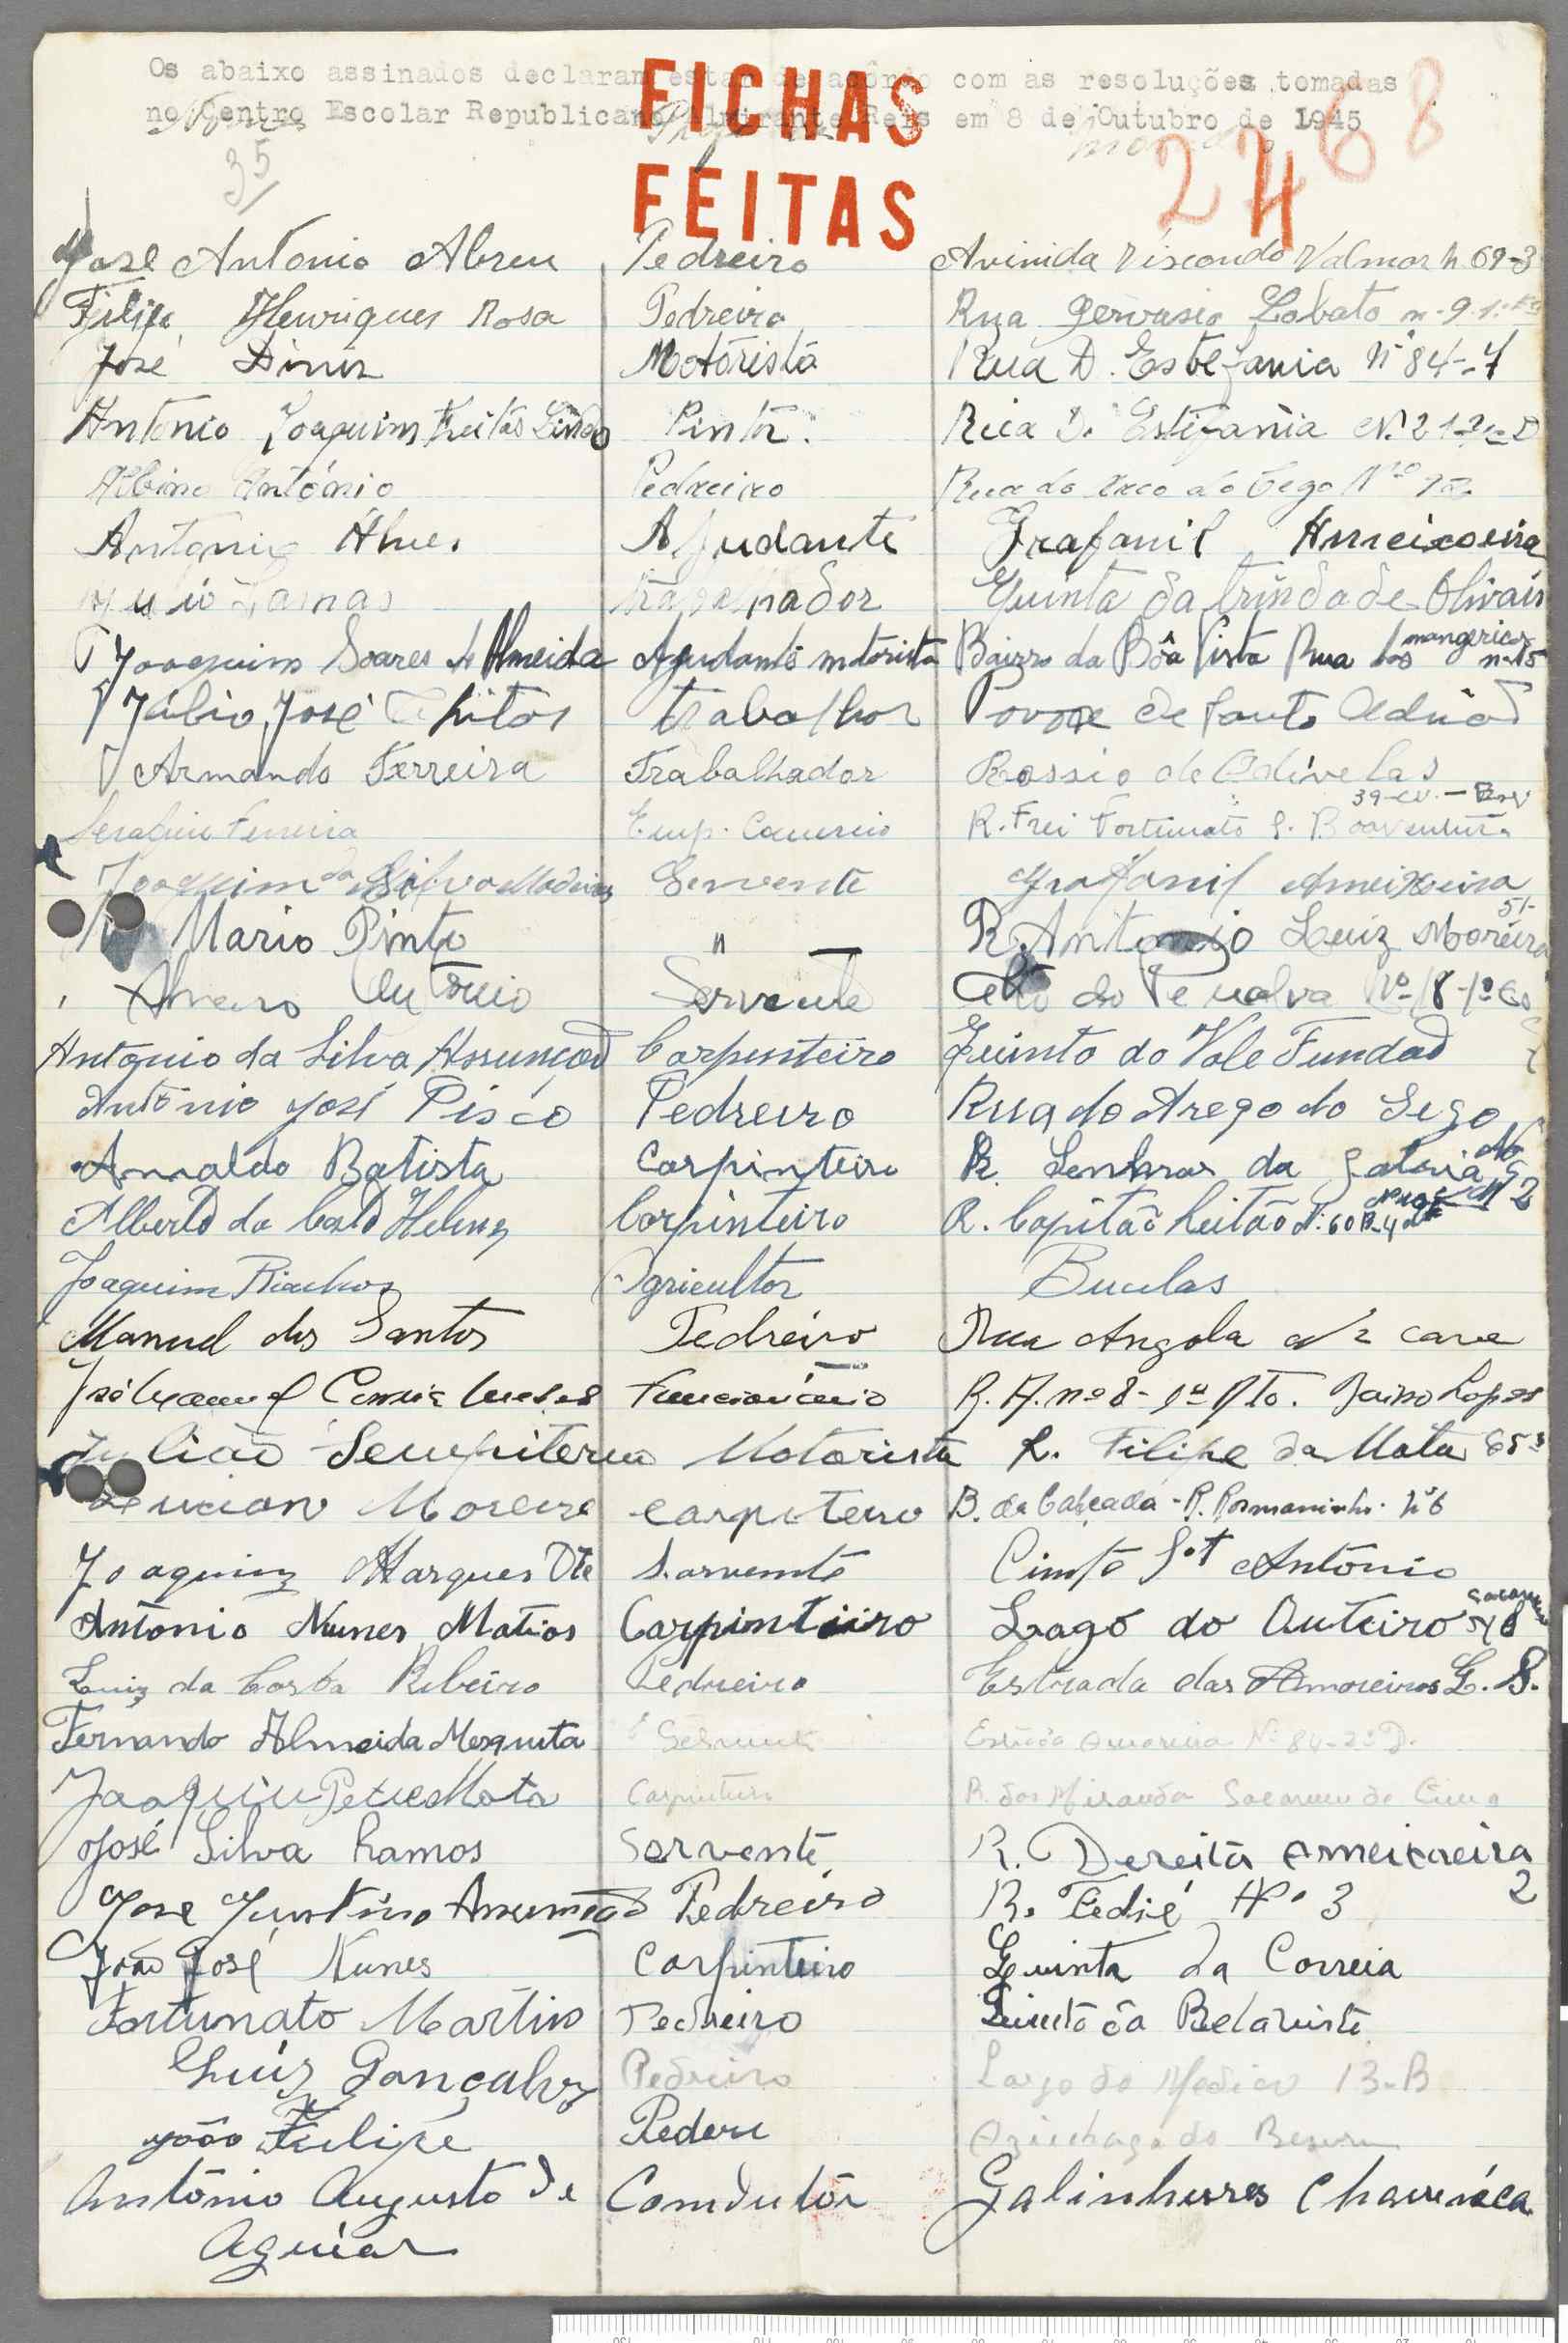 Os abaixo assinados declaram estar de acôrdo com as resoluções tomadas
no Centro Escolar Republicano Almirante Reis em 8 de Outubro de 1945
FICHAS
FEITAS
68
24
35
José Antonio Abreu Pedreiro Avinida Viscondo Valmor n. 69-3
Filipe Henriques Rosa Pedreiro Rua Gervasio Lobato n-9-1º
José Diniz Motorista Rua D. Estefania Nº 84-7
António Joaquim Freitas Pintor. Rua D. Estifania N. 21
Albino António Pedreiro Rua do Arco do Cego Nº
Antonio Alves Ajudante Grafanil Ameixoeira
Julio Lamas trabalhador Quinta da trindade Olivais
Joaquim Soares de Almeida Ajudante motorista Bairro da Bôa Vista Rua dos mangericos nº 15
Júlio José trabalhor Povoa de Santo Adrião
Armando Ferreira Trabalhador Rossio de Odivelas
Serafim Ferreira Emp. Comercio R. Frei Fortunato S. Boaventura 39-cv.
Joaquim da Silva Madeira Servente Grafanil Ameixeira
Mario Pinto " R. Antonio Luiz Moreira 51-
Alvaro António Servente Alto do Penalva Nº 18-1º
Antonio da Silva Assunção Carpenteiro Quinta do Vale Fundão
António José Pisco Pedreiro Rua do Arego do Sego
Arnaldo Batista Carpinteiro R. Senhora da Gloria Nº
Alberto da Costa Carpinteiro R. Capitão Leitão Nº 60
Joaquim Riachos Agricultor Bucelas
Manuel dos Santos Pedreiro Rua Angola Nº 2 cave
José Manuel Correia Funcionário R. A. nº 8- 1º Dto. Bairro Lopes
Julião Sempiterno Motorista R. Filipe da Mata 85
Lucian Moreira carpiteiro B. da Calçada - R. Rosmaninho. nº 6
Joaquim Marques Servente Cimo St António
António Nunes Matios Carpinteiro Lago do Outeiro 8
Luiz da Costa Ribeiro Pedreiro Estrada das Amoreiras L. B.
Fernando Almeida Mesquita Servente Estrada Amoreira Nº 84-2º D.
Joaquim Mota Carpinteiro R. das Miranda Sacavem de Cima
José Silva Ramos Servente R. Dereita Ameixoeira 2
José Justino Assunção Pedreiro R. Fedié Nº 3
João José Nunes Carpinteiro Quinta da Correia
Fortunato Martins Pedreiro Quinta da Belavista
Luiz Gonçalves Pedreiro Largo do 13-B
João Felipe Pedere Azinhaga do
António Augusto de Condutôr Galinheires Charneca
Aguiar